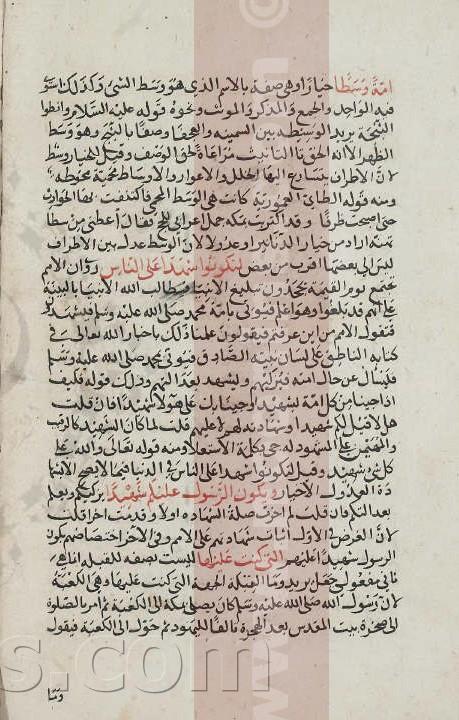 امّةً وسَطا خيارا وهى صفة بالاسم الذى هو وسط الشئ وكذلك استوى
فيه الواحد والجمع والمذكر والمونث ونحوه قوله عليه السلام وانطوا
الثبجة يريد الوسيطة بين السمينة والعجفا وصفا بالثبج وهو وسط
الظهر الا انه الحق تا التانيث مراعاة لحق الوصف وقيل للخيار وسط
لان الاطراف يتسارع اليها الخلل والاعوار والاوساط محمية محوطة
ومنه قول الطائى العمورية كانت هى الوسط المحمى فاكتنفت بها الحوادث
حتى اصبحت طرفا وقد اكتريت بمكة جمل اعرابى للحج فقال اعطنى من سطا
تهنه اراد من خيار الدنانير او عدولا لان الوسط عدل بين الاطراف
ليس الى بعضها اقرب من بعض لتكونوا شهدا على الناس روى ان الامم
تجحدون يوم القيمة تبليغ الانبيا فيطالب الله الانبيا بالبينة
على انهم قد بلغوا وهو اعلم فيوتى بامة محمد صلى الله عليه وسلم فيشهدون
فتقول الامم من اين عرفتم فيقولون علمنا ذلك باخبار الله تعالى فى
كتابه الناطق على لسان نبيه الصادق فيوتى بمحمد صلى الله عليه وسلم
فليسال عن حال امته فيزكيهم ويشهد بعدالتهم وذلك قوله فكيف
اذا جينا من كل امة بشهيد وجينا بك على هولا شهيدا فان قلت
هلا قيل لكم شهيدا وشهادته لهم لا عليهم قلت لما كان الشهيد كالرقيب
والمهيمن على المشهود له جى بكلمة الاستعلا ومنه قوله تعالى والله على
كل شى شهيد وقيل لتكونوا شهدا على الناس فى الدنيا فيما لا يصح الا بشها
دة العدول الاخيار ويكون الرسول عليكم شهيدا يزكيكم ويعلم
بعدالتكم فان قلت لم اخرت صلة الشهادة اولا وقدمت اخرا قلت
لان الغرض فى الاول اثبات شهادتهم على الامم وفى الاخر اختصاصهم بكون
الرسول شهيدا عليهم التى كنت عليها ليست بصفة للقبلة انما هى
ثانى مفعولى جعل يريد وما القبلة الجهة التى كنت عليها وهى الكعبة
لان رسول الله صلى الله عليه وسلم كان يصلى بمكة الى الكعبة ثم امر بالصلوة
الى صخرة بيت المقدس بعد الهجرة تالفا لليهود ثم حول الى الكعبة فيقول
وما